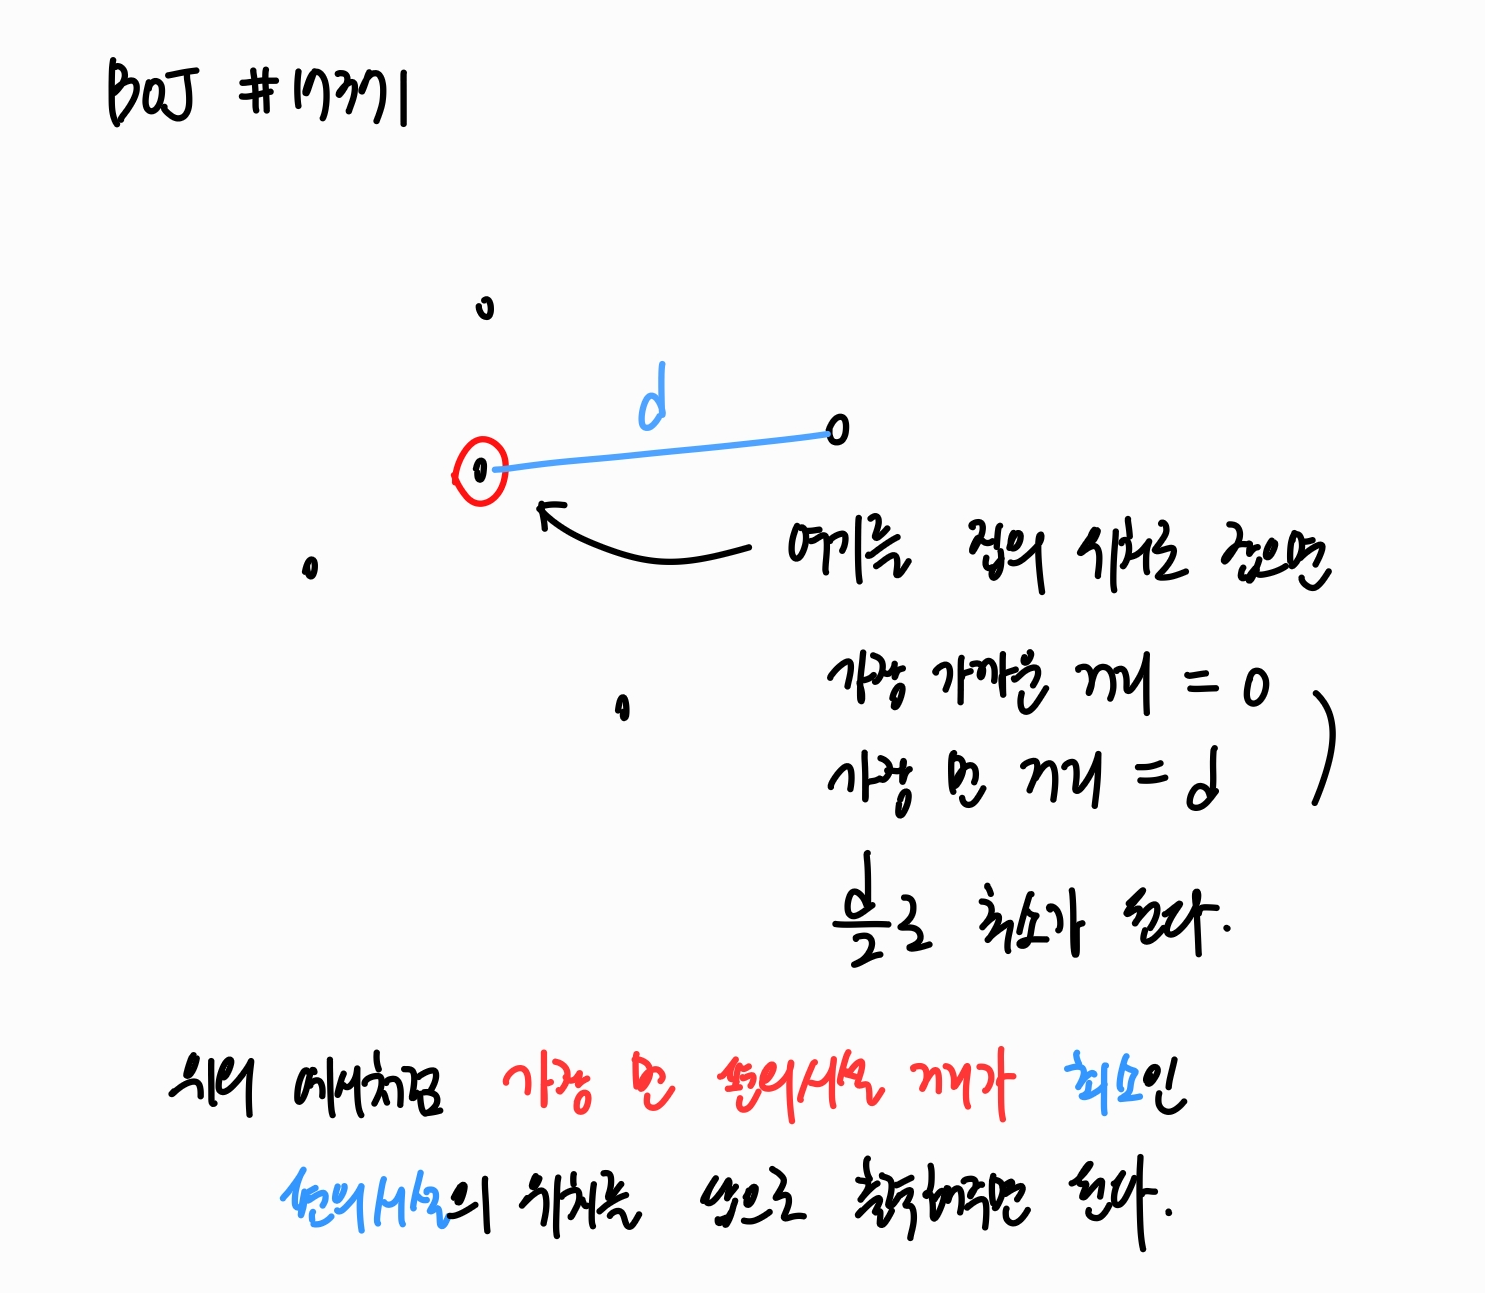 BOJ #17371
d
여기를 집의 위치로 잡으면
가장 가까운 거리 = 0
가장 먼 거리 = d
d/2로 최소가 된다.
위의 예시처럼 가장 먼 편의시설 거리가 최소인
편의시설의 위치를 답으로 출력해주면 된다.